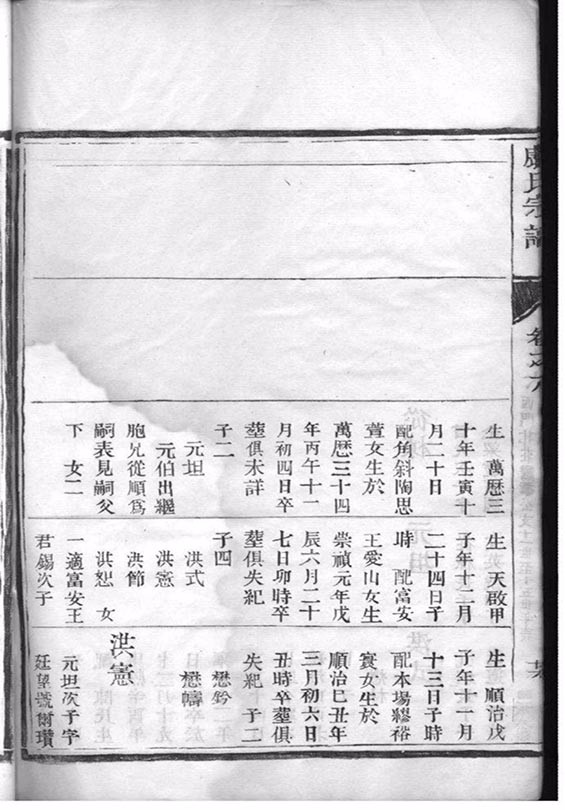 氏宗譜
卷之六
生 萬歷三
十年壬寅十
月二十日
配角斜陶思
萱女生於
萬歷三十四
年丙午十一
月初四日卒
塟俱未詳
子二
元坦
元伯出繼
胞兄從順爲
嗣表見嗣父
下 女二
生 天啟甲
子年十二月
二十四日子
時 配富安
王愛山女生
崇禎元年戊
辰六月二十
七日卯時卒
塟俱失紀
子四
洪式
洪憲
洪節
洪恕 女
一適富安王
君錫次子
生 順治戊
子年十一月
十三日子時
配本場繆裕
寰女生於
順治己丑年
三月初六日
丑時卒塟俱
失紀 子二
懋鈐
懋幬
洪憲
元坦次子字
廷望號爾瓚